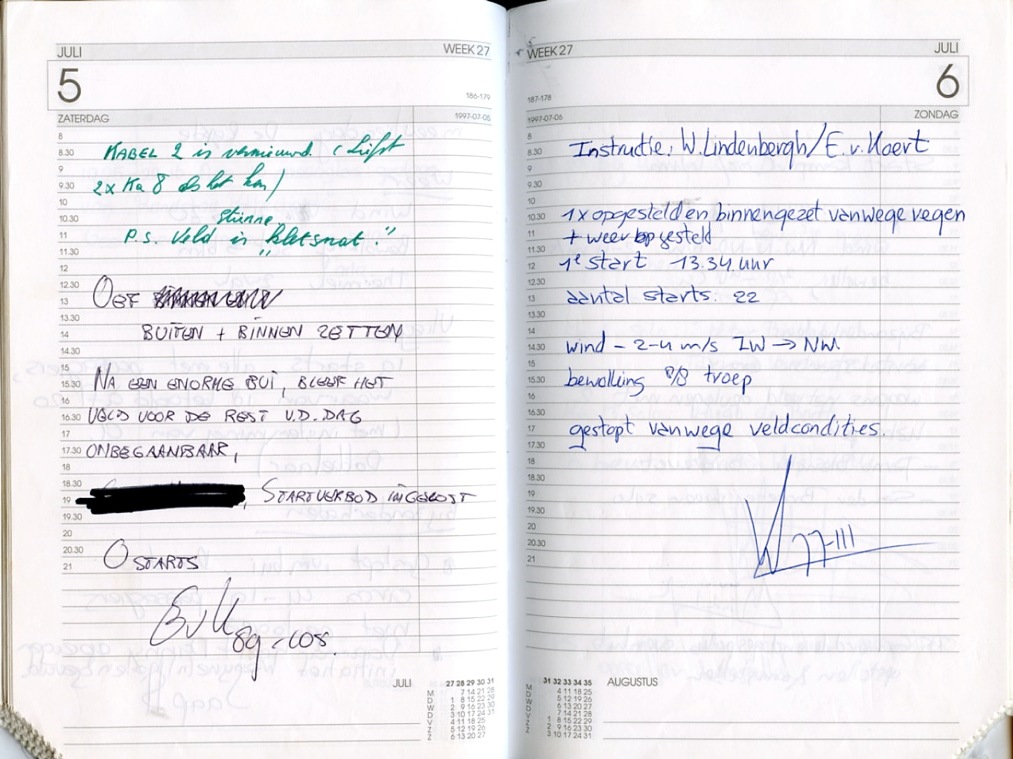 JULI WEEK 27
5
186-179
ZATERDAG 1997-07-05
8
8.30
9
9.30
10
10.30
11
11.30
12
12.30
13
13.30
14
14.30
15
15.30
16
16.30
17
17.30
18
18.30
19
19.30
20
20.30
21
KABEL 2 is vernieuwd. (Liefst
2x Ka 8 als het kan)
P.S. Veld is "kletsnat."
OEF
BUITEN + BINNEN ZETTEN
NA EEN ENORME BUI, BLEEF HET
VELD VOOR DE REST V.D. DAG
ONBEGAANBAAR,
, STARTVERBOD INGELOST
0 STARTS
EvK
89-108.
JULI
27 28 29 30 31
M 7 14 21 28
D 1 8 15 22 29
W 2 9 16 23 30
D 3 10 17 24 31
V 4 11 18 25
Z 5 12 19 26
Z 6 13 20 27
WEEK 27 JULI
6
187-178
1997-07-06 ZONDAG
8
8.30
9
9.30
10
10.30
11
11.30
12
12.30
13
13.30
14
14.30
15
15.30
16
16.30
17
17.30
18
18.30
19
19.30
20
20.30
21
Instructie: W. Lindenbergh/E. v. Koert
1x opgesteld en binnengezet vanwege regen
+ weer opgesteld
1e start 13.34 uur
aantal starts: 22
wind - 2-4 m/s ZW → NW.
bewolking 8/8 troep
gestopt vanwege veldcondities.
77-III
31 32 33 34 35 AUGUSTUS
M 4 11 18 25
D 5 12 19 26
W 6 13 20 27
D 7 14 21 28
V 1 8 15 22 29
Z 2 9 16 23 30
Z 3 10 17 24 31